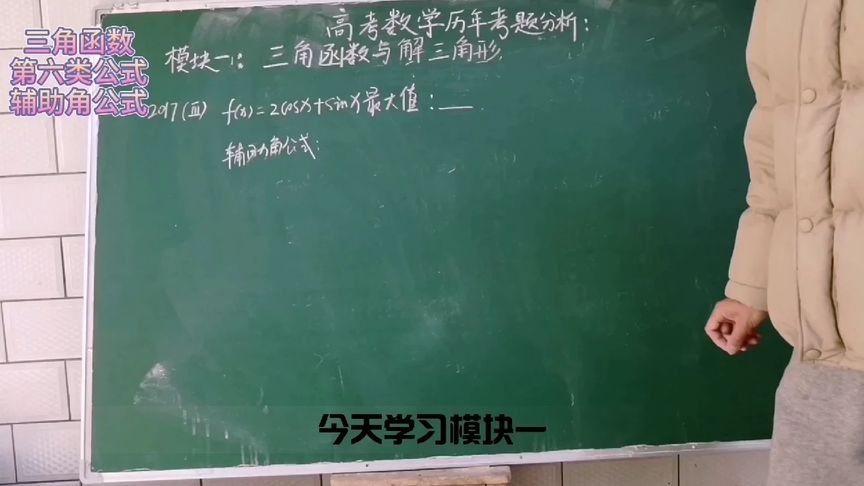 三角函数
第六类公式
辅助角公式
高考数学历年考题分析:
模块一: 三角函数与解三角形
2017(Ⅲ) f(x)=2cosx+sinx最大值:___
辅助角公式:
今天学习模块一